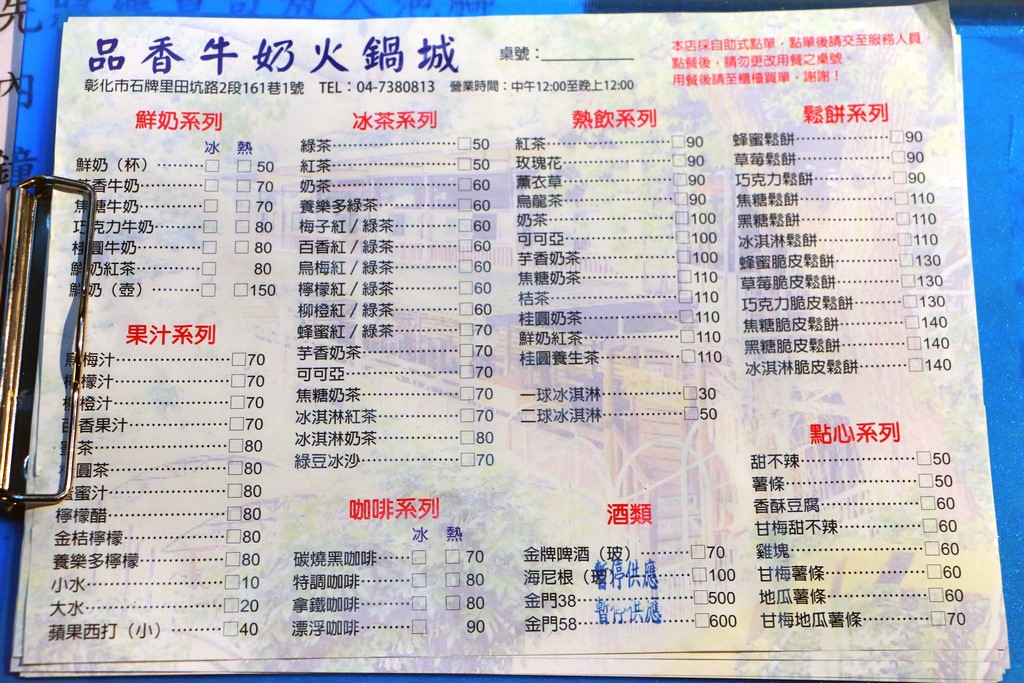 品香牛奶火鍋城
桌號：
本店採自助式點單，點單後請交至服務人員
點餐後，請勿更改用餐之桌號。
用餐後請至櫃檯買單，謝謝！
彰化市石牌里田坑路2段161巷1號 TEL：04-7380813 營業時間：中午12:00至晚上12:00
鮮奶系列
冰 熱
鮮奶（杯）………□ □ 50
香牛奶………□ □ 70
焦糖牛奶………□ □ 70
巧克力牛奶………□ □ 80
桂圓牛奶………□ □ 80
鮮奶紅茶………□ 80
鮮奶（壺）………□ □150
果汁系列
烏梅汁………□70
檸檬汁………□70
橙汁………□70
百香果汁………□70
茶………□80
圓茶………□80
蜜汁………□80
檸檬醋………□80
金桔檸檬………□80
養樂多檸檬………□80
小水………□10
大水………□20
蘋果西打（小）………□40
冰茶系列
綠茶………□50
紅茶………□50
奶茶………□60
養樂多綠茶………□60
梅子紅／綠茶………□60
百香紅／綠茶………□60
烏梅紅／綠茶………□60
檸檬紅／綠茶………□60
柳橙紅／綠茶………□60
蜂蜜紅／綠茶………□70
芋香奶茶………□70
可可亞………□70
焦糖奶茶………□70
冰淇淋紅茶………□70
冰淇淋奶茶………□80
綠豆冰沙………□70
咖啡系列
冰 熱
碳燒黑咖啡………□ □ 70
特調咖啡………□ □ 80
拿鐵咖啡………□ □ 80
漂浮咖啡………□ 90
熱飲系列
紅茶………□90
玫瑰花………□90
薰衣草………□90
烏龍茶………□90
奶茶………□100
可可亞………□100
芋香奶茶………□100
焦糖奶茶………□110
桔茶………□110
桂圓奶茶………□110
鮮奶紅茶………□110
桂圓養生茶………□110
一球冰淇淋………□30
二球冰淇淋………□50
酒類
金牌啤酒（玻）………□70
海尼根（玻 暫停供應………□100
金門38………□500
金門58 暫停供應………□600
鬆餅系列
蜂蜜鬆餅………□90
草莓鬆餅………□90
巧克力鬆餅………□90
焦糖鬆餅………□110
黑糖鬆餅………□110
冰淇淋鬆餅………□110
蜂蜜脆皮鬆餅………□130
草莓脆皮鬆餅………□130
巧克力脆皮鬆餅………□130
焦糖脆皮鬆餅………□140
黑糖脆皮鬆餅………□140
冰淇淋脆皮鬆餅………□140
點心系列
甜不辣………□50
薯條………□50
香酥豆腐………□60
甘梅甜不辣………□60
雞塊………□60
甘梅薯條………□60
地瓜薯條………□60
甘梅地瓜薯條………□70